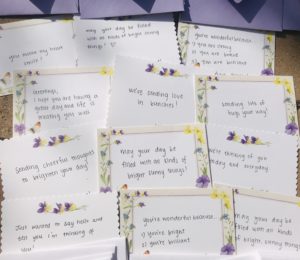 you make my heart
smile!
may your day be filled
with all kinds of bright, sunny
things!
you're wonderful because...
1) you are strong
2) you are
3) you are brilliant
Greetings,
I hope you are having a
great day and life is
treating you well
We're sending love
in bunches!
Sending lots of
hugs your way!
Sending cheerful thoughts
to brighten your day!
May your day be
filled with all kinds of
bright, sunny things!
We're thinking of you
today and everyday
Just wanted to say hello and
tell you i'm thinking of
you!
you're wonderful because...
1) you're bright
2) you're brilliant
May your day be
filled with all kinds
of bright, sunny things